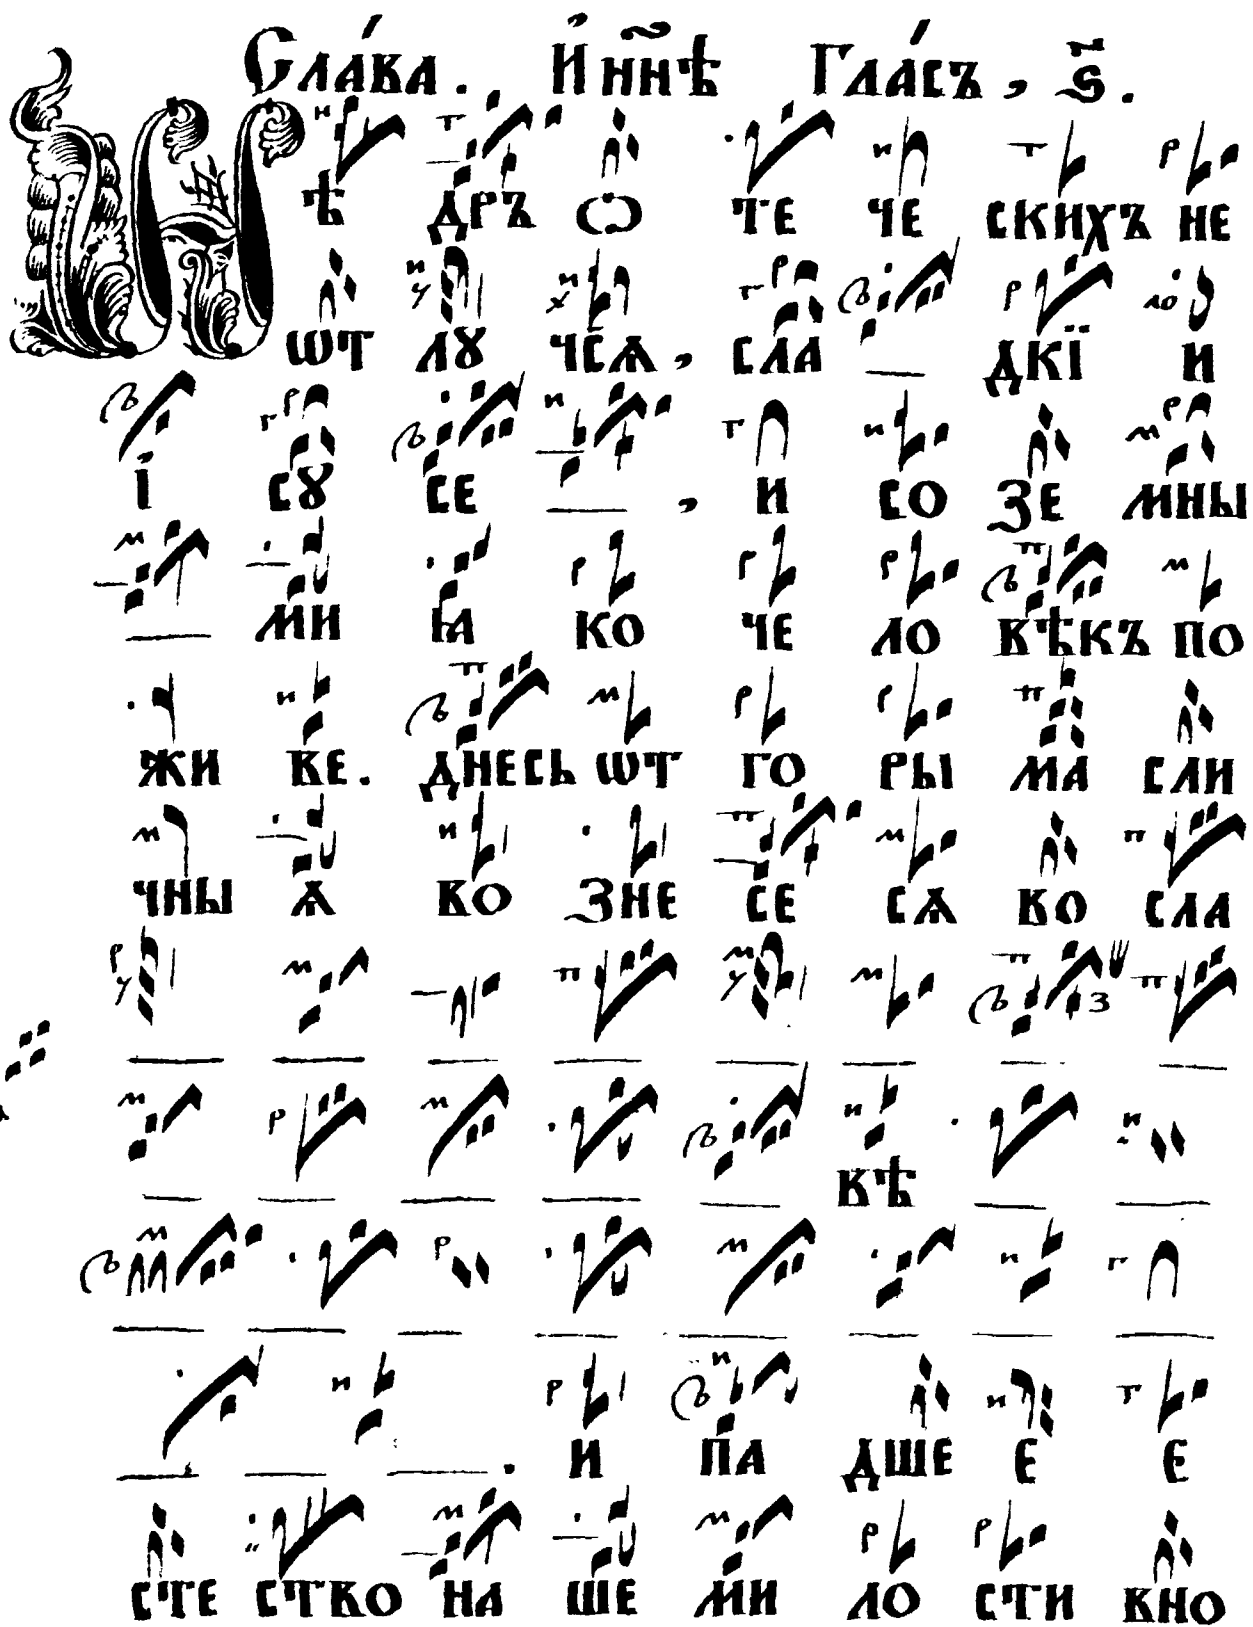 Сла́ва. И҆ нн҃ѣ Гла́съ, ѕ҃.
Нѣ дръ ѻ те че скихъ не
ѿ лꙋ чсѧ, сла дкї и
і сꙋ се , и со зе мны
ми ꙗ ко че ло вѣкъ по
жи ве. днесь ѿ го ры ма сли
чны ѧ во зне се сѧ во сла
вѣ
. и па дше е е
сте ство на ше ми ло сти вно